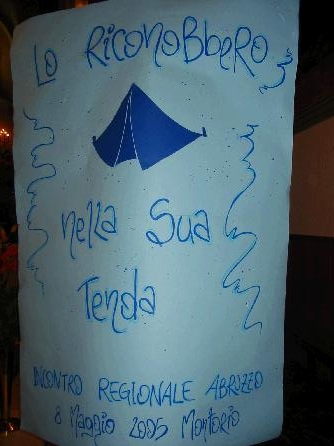 Lo RiconoBbeRo
nella Sua
Tenda
INCONTRO REGIONALE ABRUZZO
8 Maggio 2005 Montorio